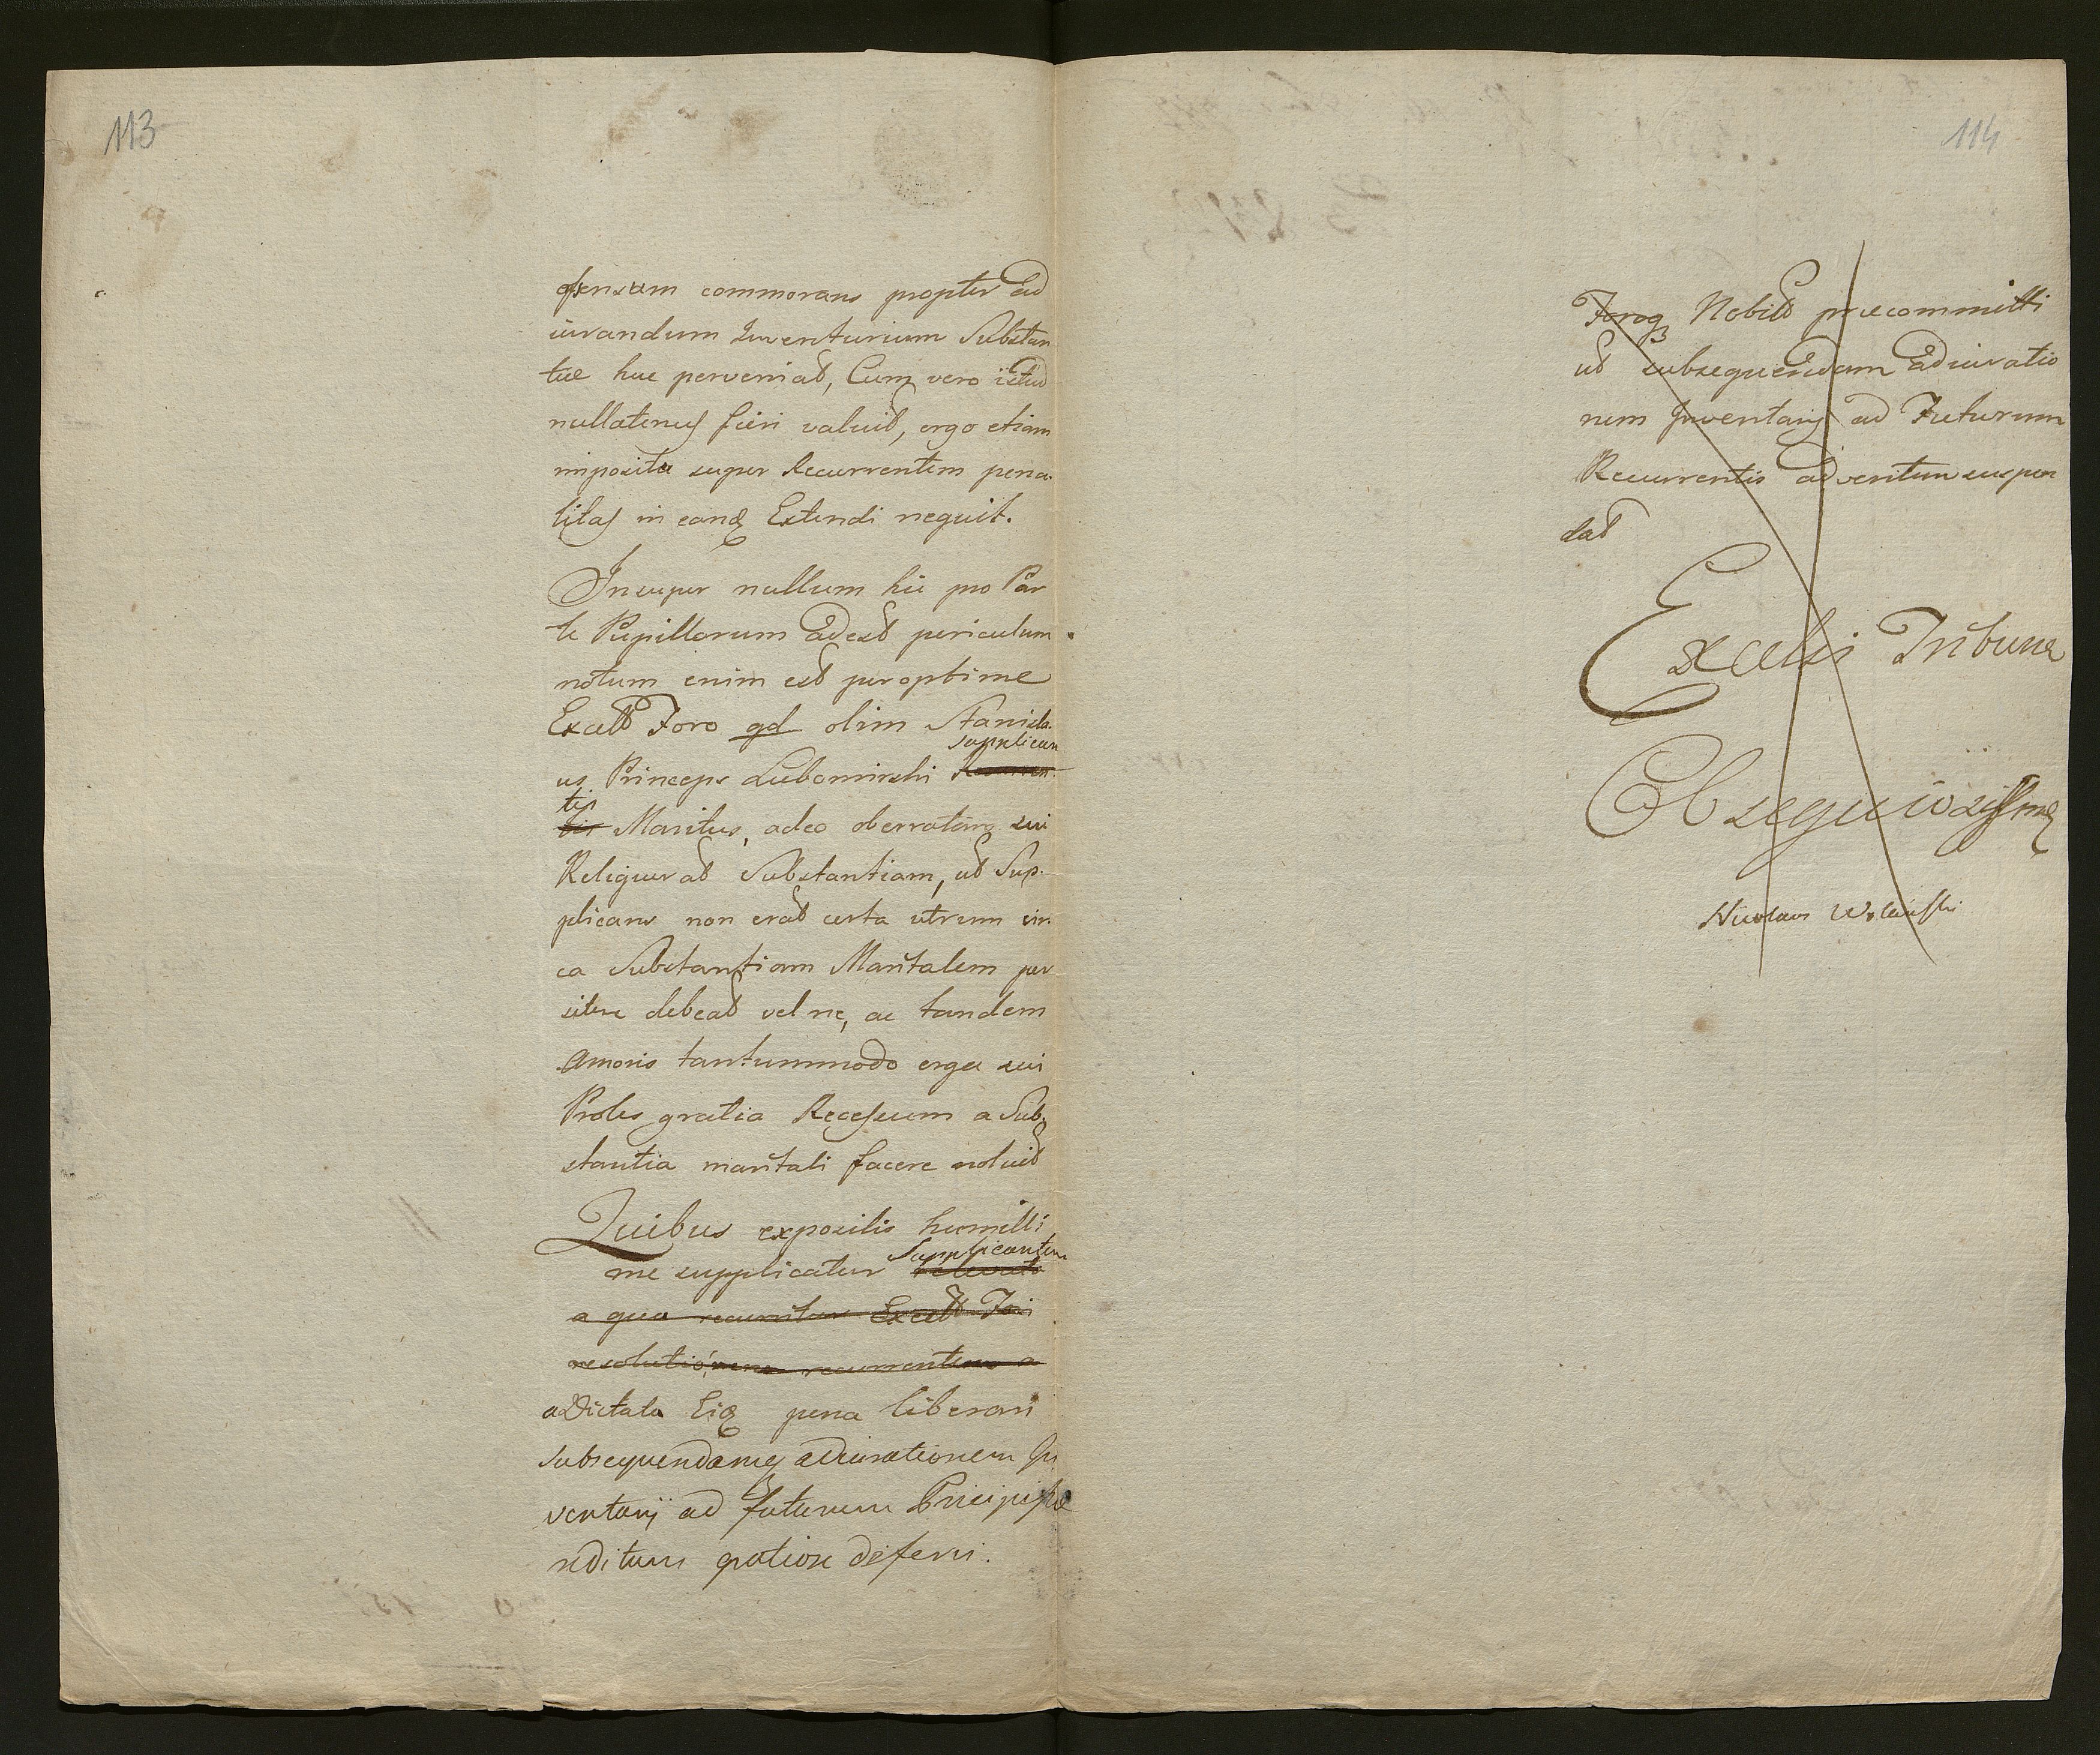 113
114
offensam commorans propter ad
iurandum Inventarium Substan
tiæ huc perveniat, Cum vero istud
nullatenus fieri valuit, ergo etiam
imposita super Recurrentem pena
litas in eandq Extendi nequit.
Insuper nullum hic pro Par
te Pupillorum Adest periculum
notum enim est peroptime
Excels Foro qd olim Stanisla
supplican
us Princeps Lubomirski Recurren
tis
tis Maritus, adeo oberratam sui
Reliquerat Substantiam, ut Sup
plicans non erat certa utrum cir
ca Substantiam Maritalem per
sistere debeat vel ne, ac tandem
amoris tantummodo erga sui
Proles gratia Recessum a Sub
stantia maritali facere noluit
Quibus expositis humilli
Supplicantem
me supplicatur
a qua recurritur Excels Fori
resolutiónem recurrentem a
aDictata Eiq pena liberari
subsequendamq adiurationem In
ventarij ad futurum Principissæ
reditum potiore deferri.
Foroq Nobil præcommitti
ut subsequendam Adiuratio
nem Inventarij ad Futurum
Recurrentis adventum suspen
dat
Excelsi Tribuna
Obsequiosissime
Nicolaus Woleński